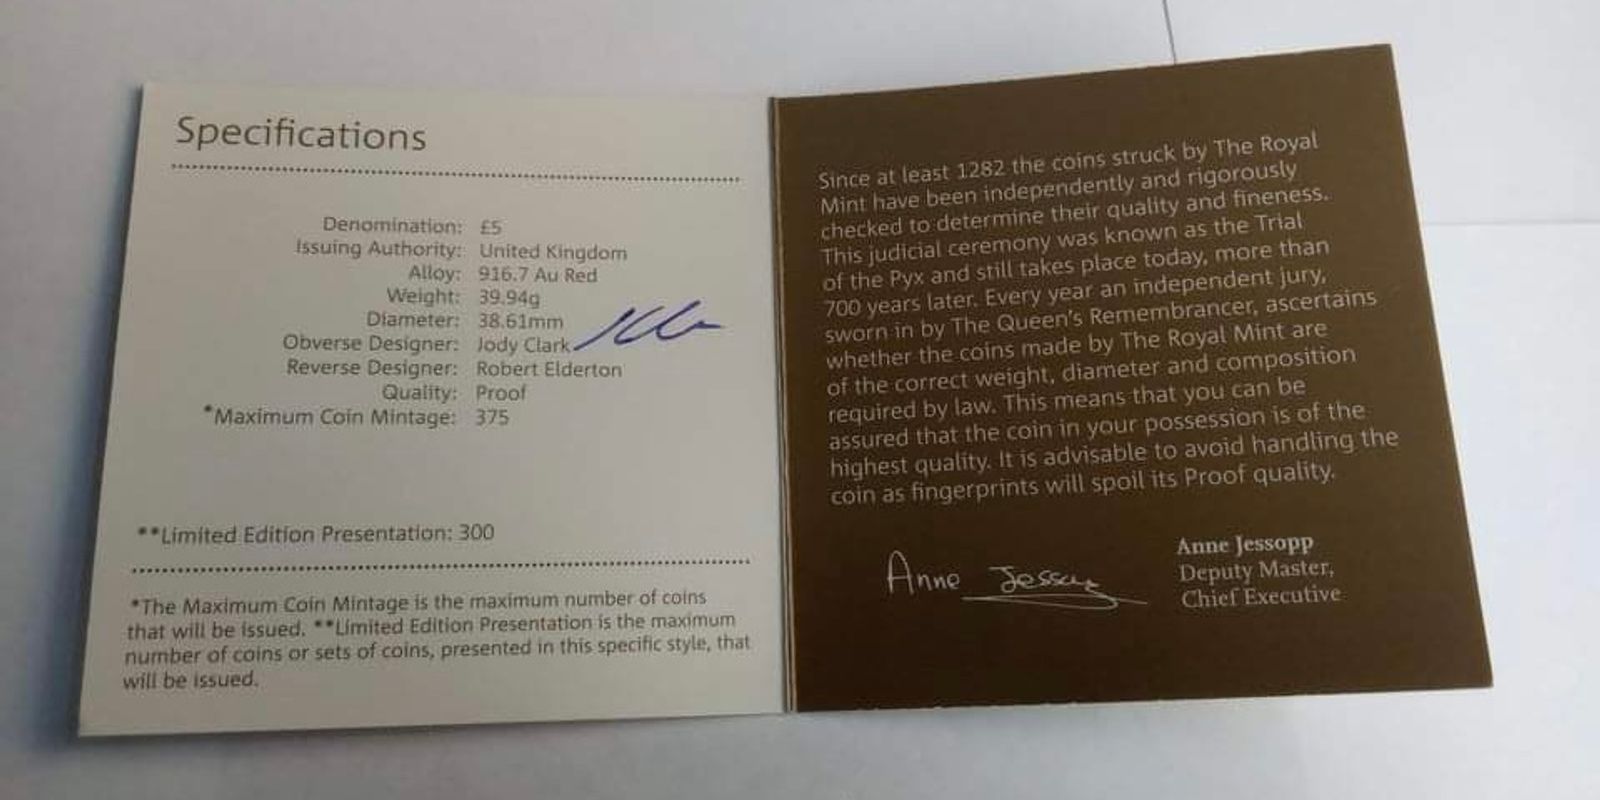 Specifications
Denomination: £5
Issuing Authority: United Kingdom
Alloy: 916.7 Au Red
Weight: 39.94g
Diameter: 38.61mm
Obverse Designer: Jody Clark
Reverse Designer: Robert Elderton
Quality: Proof
*Maximum Coin Mintage: 375
**Limited Edition Presentation: 300
*The Maximum Coin Mintage is the maximum number of coins
that will be issued. **Limited Edition Presentation is the maximum
number of coins or sets of coins, presented in this specific style, that
will be issued.
Since at least 1282 the coins struck by The Royal
Mint have been independently and rigorously
checked to determine their quality and fineness.
This judicial ceremony was known as the Trial
of the Pyx and still takes place today, more than
700 years later. Every year an independent jury,
sworn in by The Queen's Remembrancer, ascertains
whether the coins made by The Royal Mint are
of the correct weight, diameter and composition
required by law. This means that you can be
assured that the coin in your possession is of the
highest quality. It is advisable to avoid handling the
coin as fingerprints will spoil its Proof quality.
Anne Jessopp
Anne Jessopp
Deputy Master,
Chief Executive